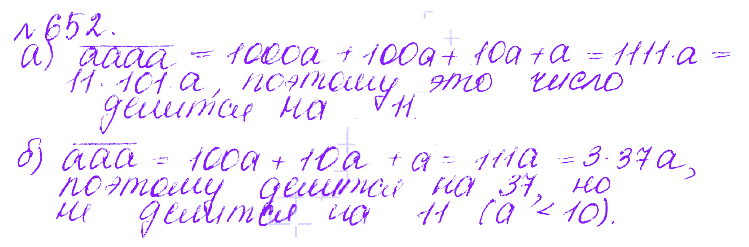 №652.
а) a̅a̅a̅a̅ = 1000a + 100a + 10a + a = 1111·a =
11·101·a, поэтому это число
делится на 11.
б) a̅a̅a̅ = 100a + 10a + a = 111a = 3·37a,
поэтому делится на 37, но
не делится на 11 (a < 10).